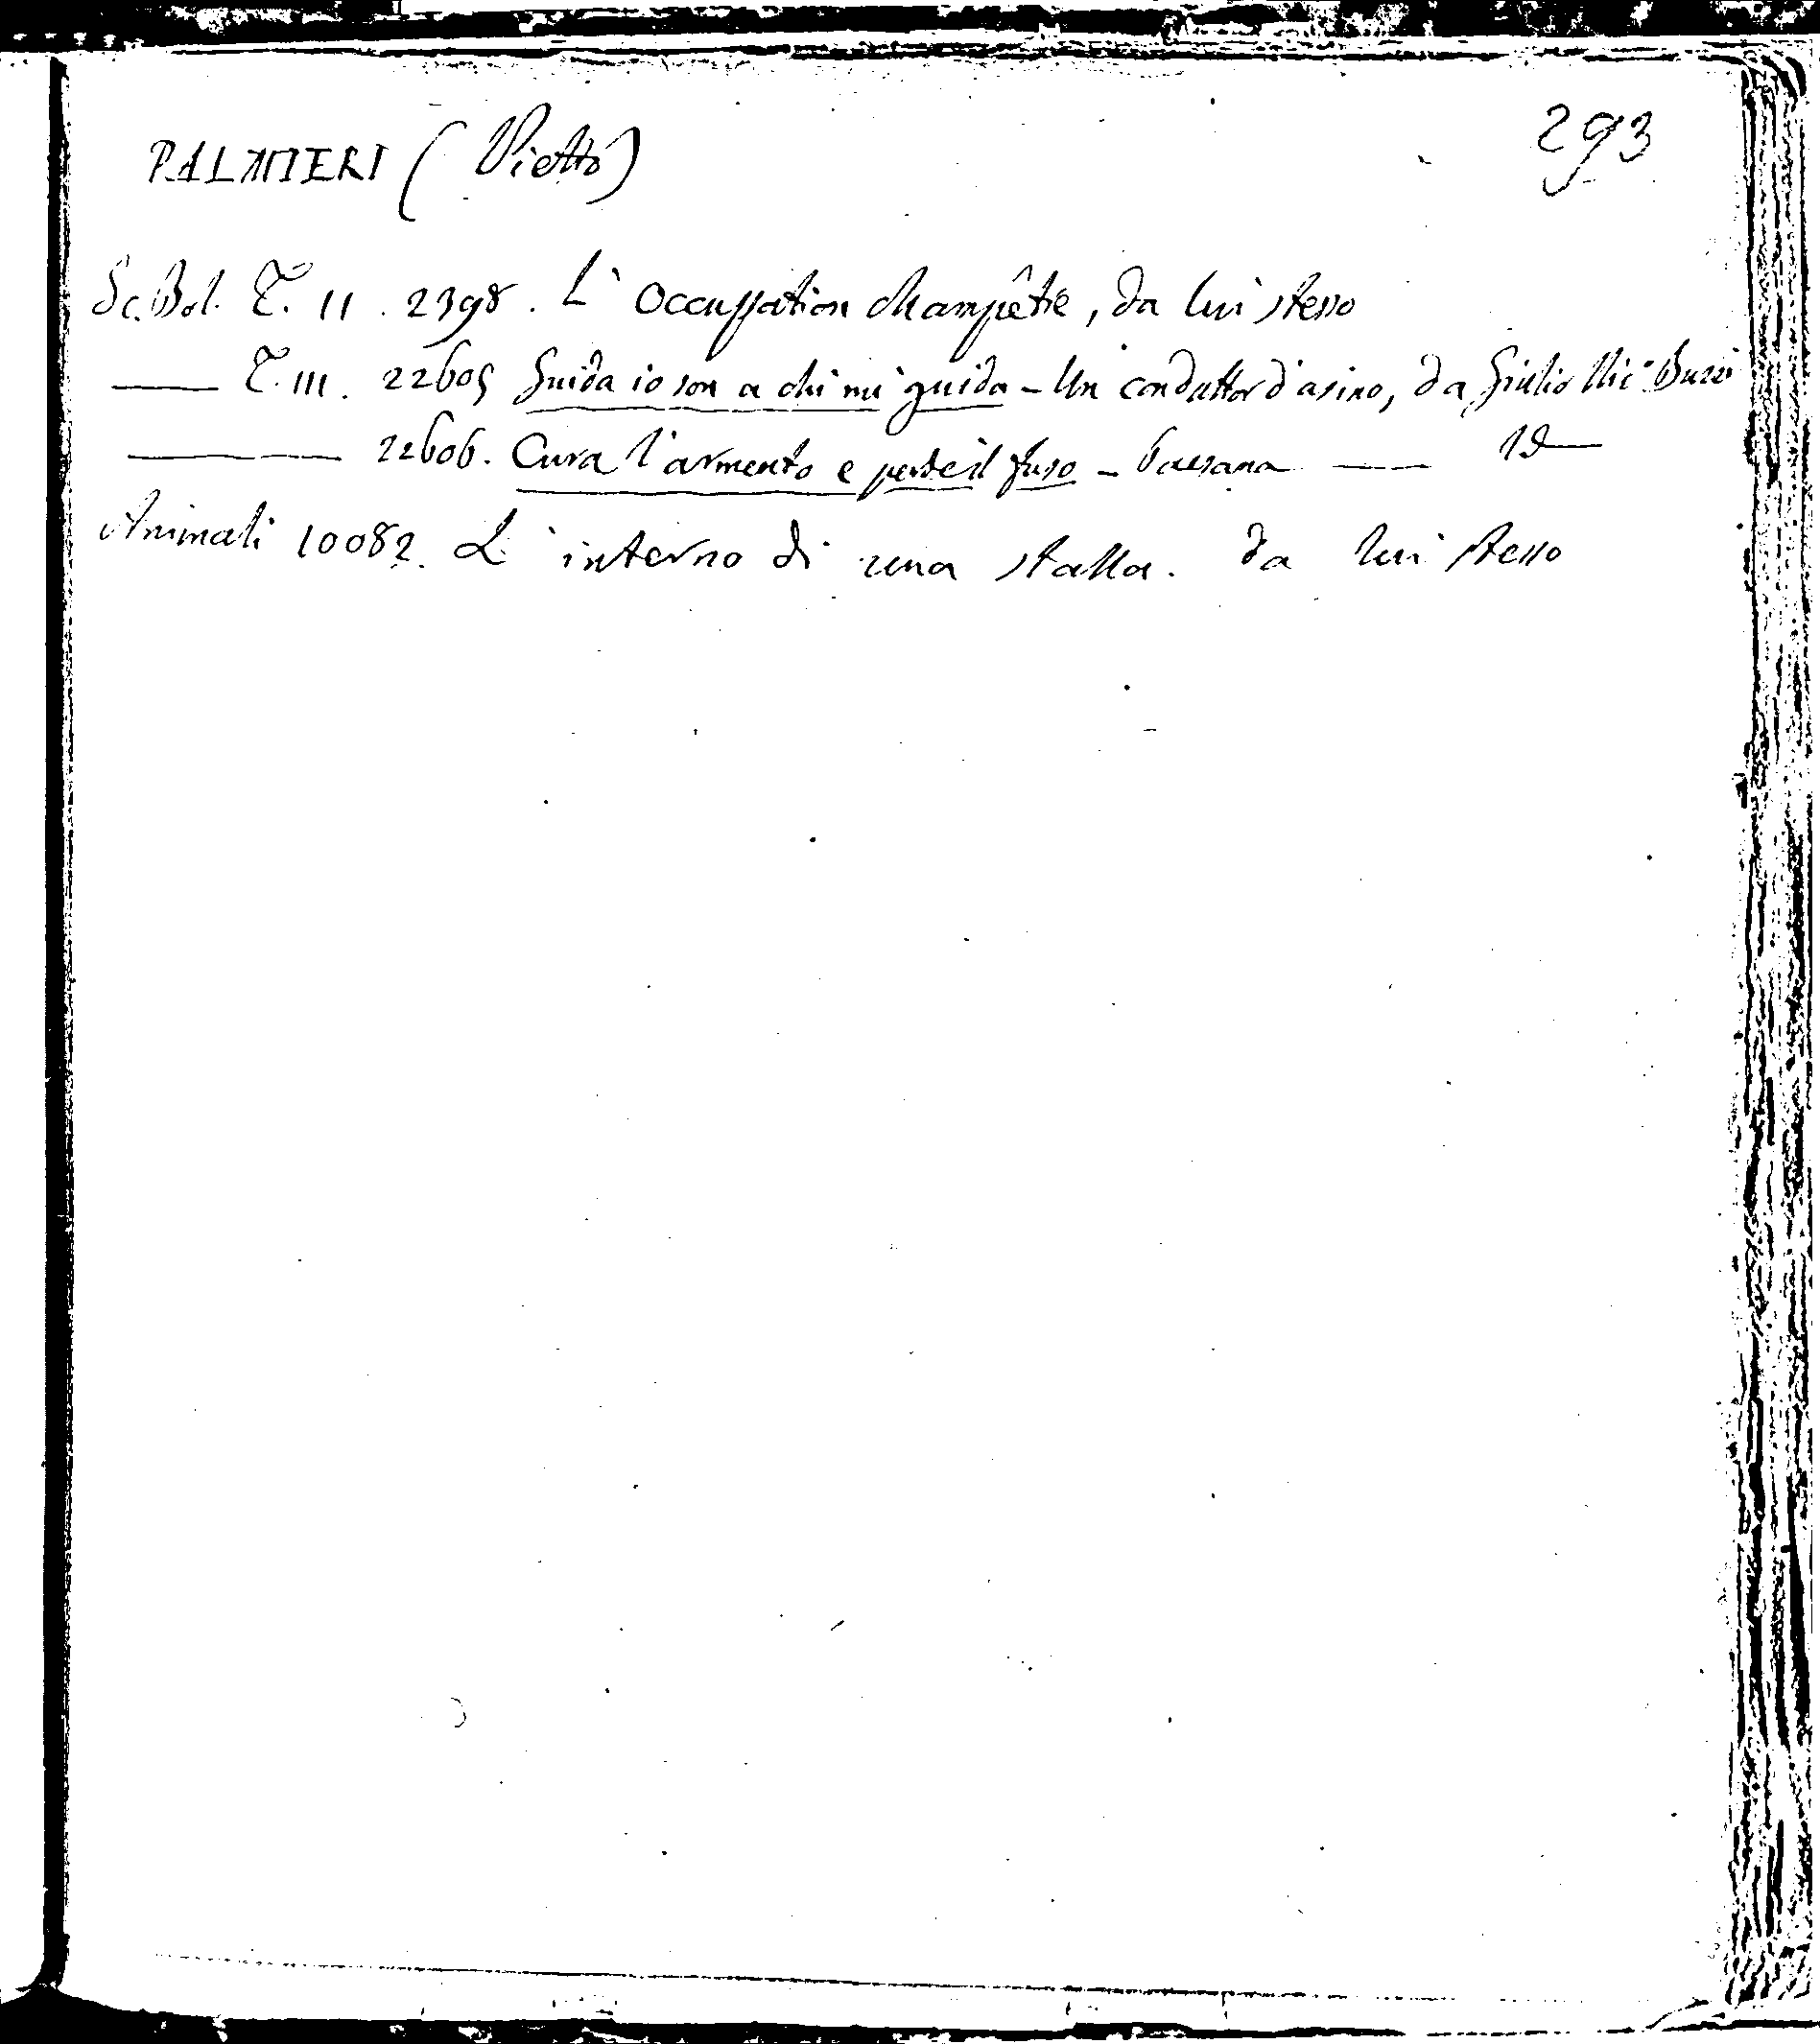 293
PALMIERI (Pietro)
Sc. Bol. T. II. 2398. L'Occupation champêtre, da lui stesso
—— T. III. 22605 Guida io son a chi mi guida - Un conduttor d'asino, da Giulio Nic
———— 22606. Cura l'armento e perde il fuso - —— Id—
Animali 10082. L'interno di una stalla. da lui stesso